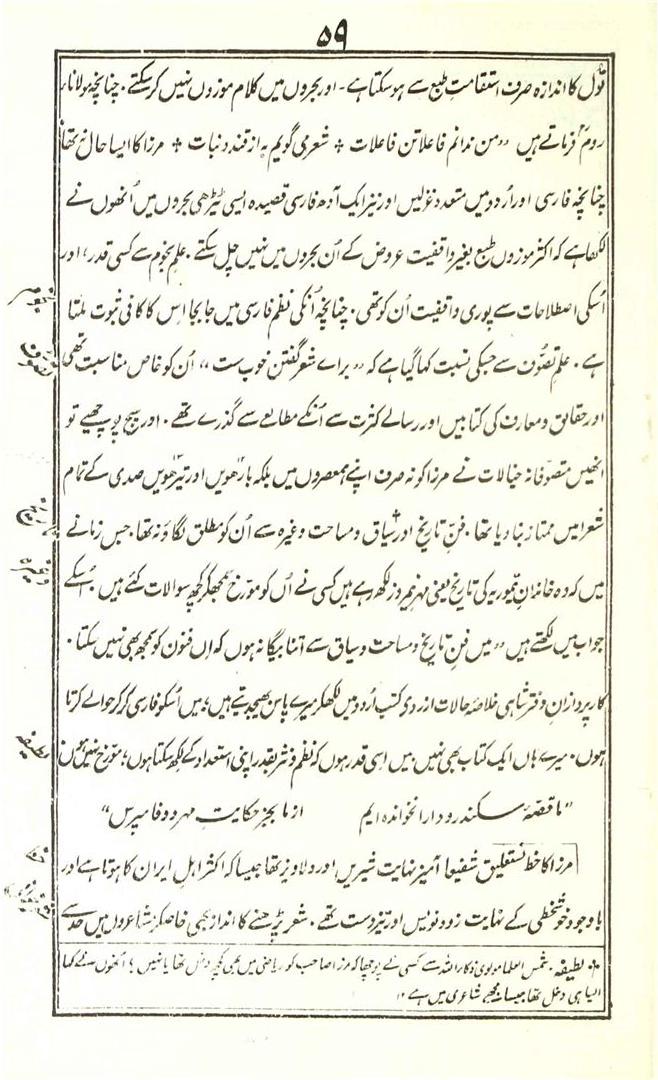 ۵۹
قول کا اندازہ صرف استقامتِ طبع سے ہو سکتا ہے۔ اور بحروں میں کلام موزوں نہیں کر سکتے۔ چنانچہ مولانا
روم فرماتے ہیں "من ندانم فاعلاتن فاعلات ٭ شعر می گویم بہ از قند و نبات ٭ مرزا کا ایسا حال نہ تھا
چنانچہ فارسی اور اُردو میں متعدد غزلیں اور نیز ایک آدھ فارسی قصیدہ ایسی ٹیڑھی بحروں میں اُنھوں نے
لکھا ہے کہ اکثر موزوں طبع بغیر واقفیت عروض کے اُن بحروں میں نہیں چل سکتے۔ علم نجوم سے کسی قدر، اور
اُسکی اصطلاحات سے پوری واقفیت اُن کو تھی۔ چنانچہ اُنکی نظم فارسی میں جا بجا اس کا کافی ثبوت ملتا
ہے۔ علم تصوّف سے جسکی نسبت کہا گیا ہے کہ "براے شعر گفتن خوب ست" اُن کو خاص مناسبت تھی
اور حقایق و معارف کی کتابیں اور رسالے کثرت سے اُنکے مطالعے سے گذرے تھے۔ اور سچ پوچھیے تو
انھیں متصوّفانہ خیالات نے مرزا کو نہ صرف اپنے ہمعصروں میں بلکہ بارھویں اور تیرھویں صدی کے تمام
شعرا میں ممتاز بنا دیا تھا۔ فنِّ تاریخ اور سیاق و مساحت وغیرہ سے اُن کو مطلق لگاؤ نہ تھا۔ جس زمانے
میں کہ وہ خاندانِ تیموریہ کی تاریخ یعنی مہر نیمروز لکھ رہے ہیں کسی نے اُن کو مورّخ سمجھ کر کچھ سوالات کئے ہیں۔ اُسکے
جواب میں لکھتے ہیں "میں فنِ تاریخ و مساحت و سیاق سے اتنا بیگانہ ہوں کہ اِن فنون کو سمجھ بھی نہیں سکتا۔
کارپردازانِ دفتر شاہی خلاصہ حالات از روی کتب اُردو میں لکھکر میرے پاس بھیجدیتے ہیں؛ میں اُسکو فارسی کر کر حوالے کرتا
ہوں۔ میرے ہاں ایک کتاب بھی نہیں۔ میں اِسی قدر ہوں کہ نظم و نثر بقدر اپنی استعداد کے لکھ سکتا ہوں؛ مورّخ نہیں ہوں
"ما قصّۂ سکندر و دارا نخواندہ ایم از ما بجز حکایتِ مہر و وفا مپرس"
مرزا کا خط نستعلیق شفیعا آمیز نہایت شیریں اور دلاویز تھا جیسا کہ اکثر اہلِ ایران کا ہوتا ہے اور
باوجود خوشخطی کے نہایت زود نویس اور تیز دست تھے۔ شعر پڑھنے کا انداز بھی خاصکر مشاعروں میں حد سے
٭ لطیفہ۔ شمس العلما مولوی ذکاء اللہ سے کسی نے پوچھا کہ مرزا صاحب کو ریاضی میں بھی کچھ دخل تھا یا نہیں؟ اُنھوں نے کہا
ایسا ہی دخل تھا جیسا مجھے شاعری میں ہے ۱۲
نجوم
تصوف
تاریخ
وغیرہ
لطیفہ
خط